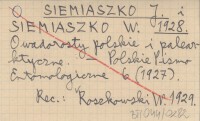 O SIEMIASZKO J. i
SIEMIASZKO W. 1928.
Owadorosty polskie i palear-
ktyczne. _ Polskie Pismo
Entomologiczne 6 (1927).
Rec.: Roszkowski W. 1929.